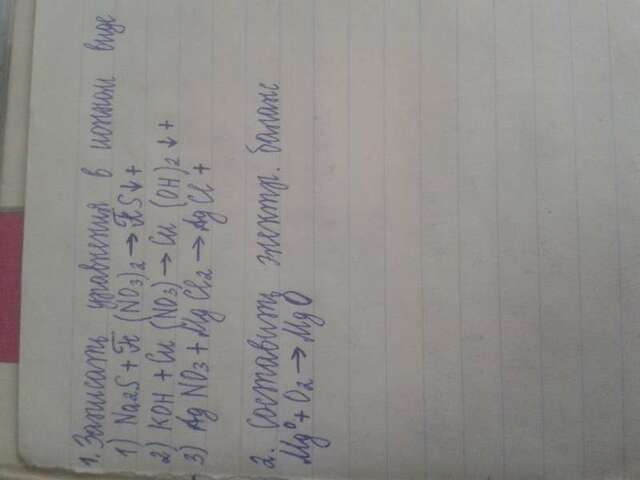 1. Записать уравнения в ионном виде
1) Na2S + Fe (NO3)2 → FeS↓ +
2) KOH + Cu (NO3) → Cu (OH)2 ↓ +
3) Ag NO3 + MgCl2 → AgCl +
2. Составить электр. баланс
Mg⁰ + O2 → MgO